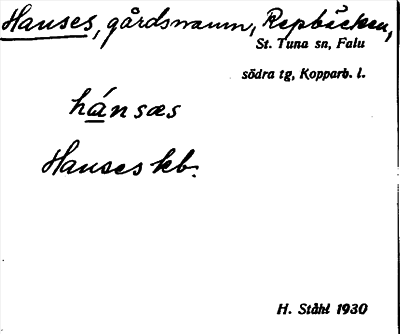 Hanses, gårdsnamn, Repbäcken,
St. Tuna sn, Falu
södra tg, Kopparb. l.
hánsæs
Hanses kb.
H. Ståhl 1930